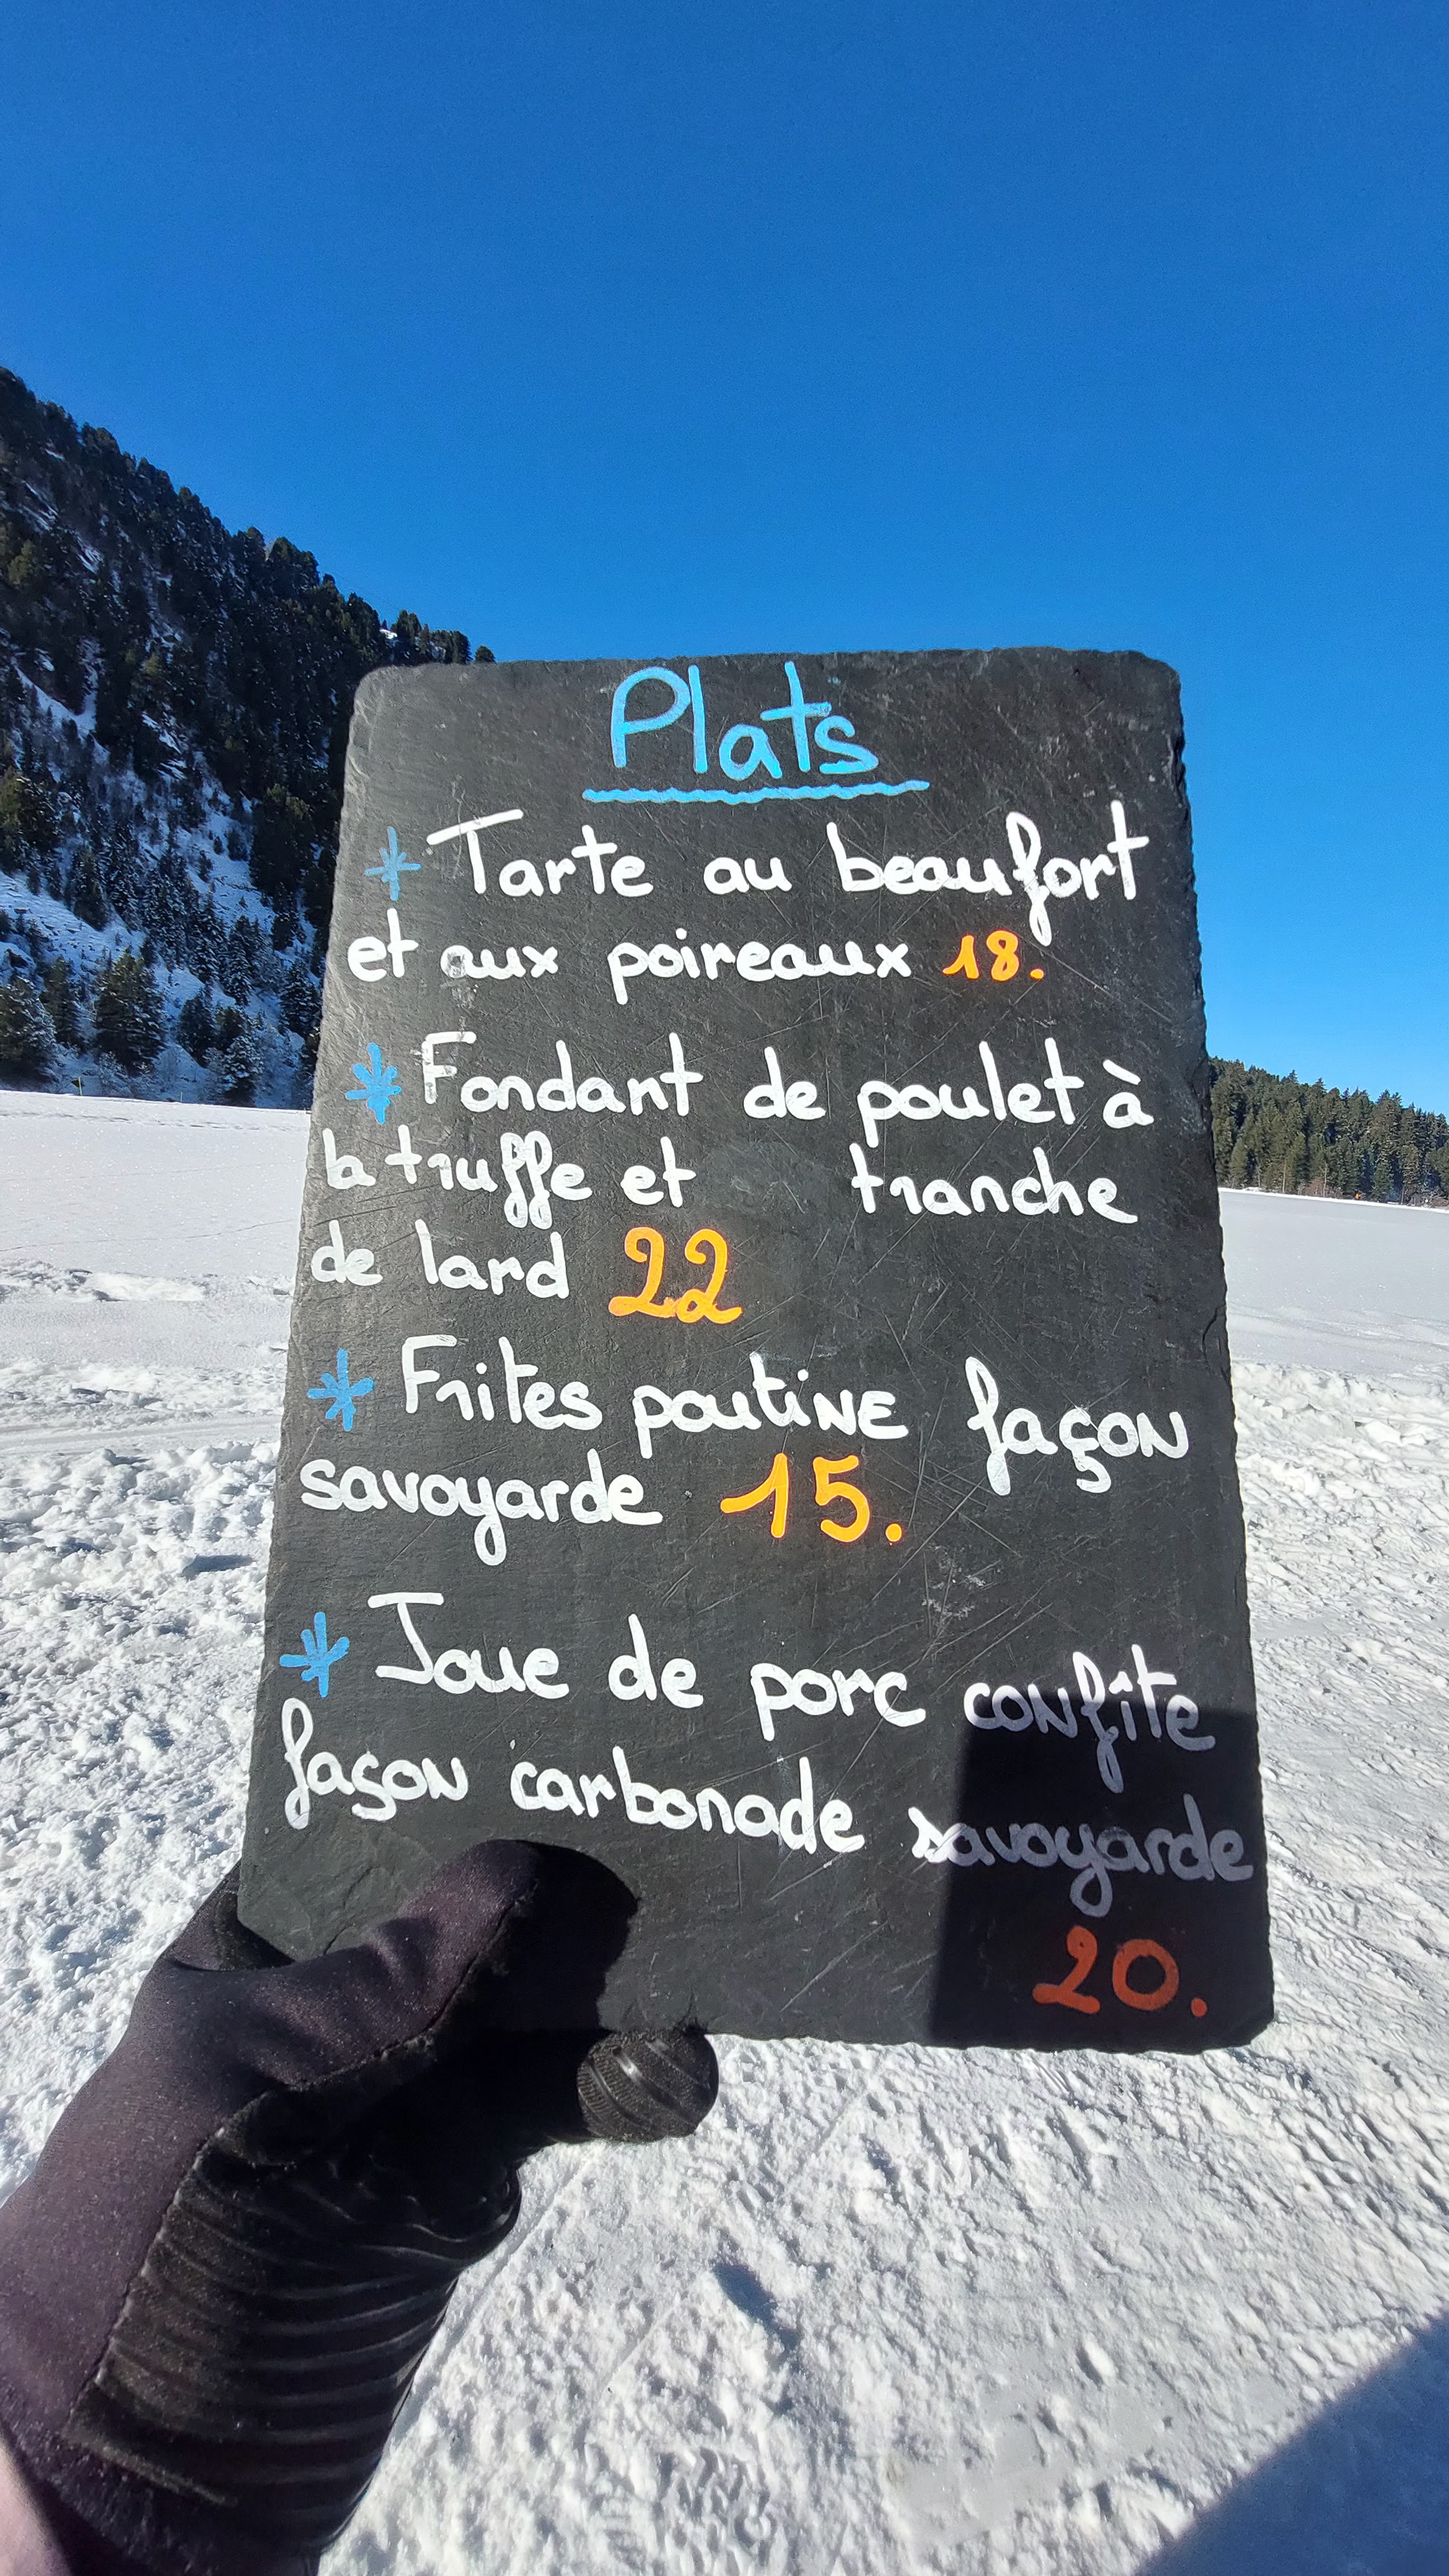 Plats
* Tarte au beaufort
et aux poireaux 18.
* Fondant de poulet à
la truffe et tranche
de lard 22
* Frites poutine façon
savoyarde 15.
* Joue de porc confîte
façon carbonade savoyarde
20.